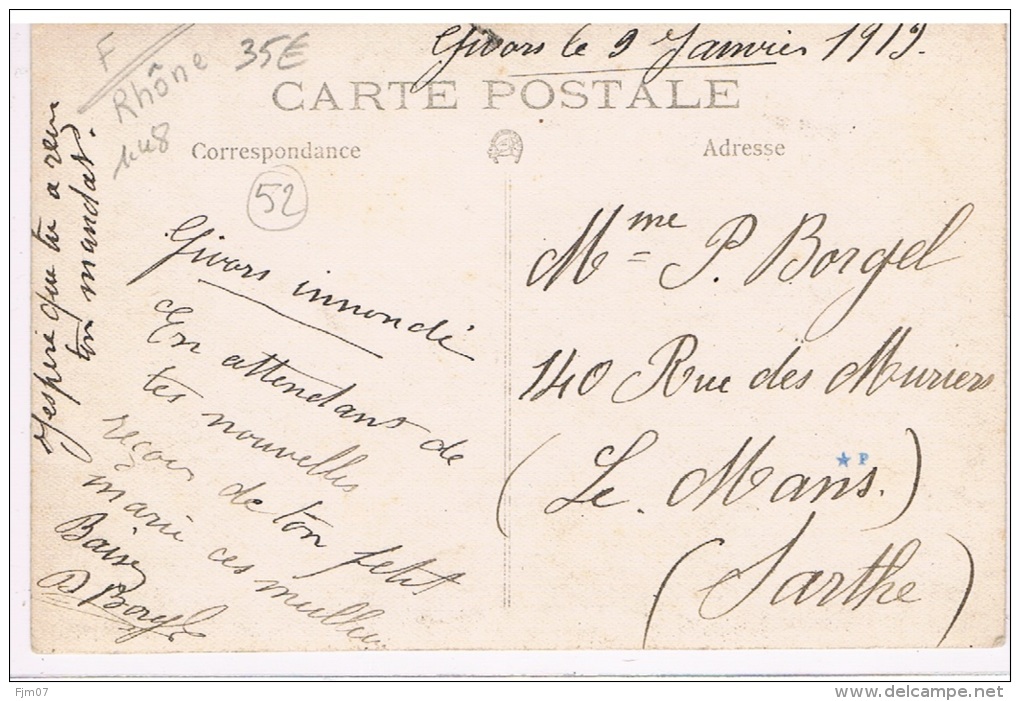 Givors le 9 Janvier 1919.
F
Rhône 35E
CARTE POSTALE
Correspondance
Adresse
52
j'espère que tu a reçu
ton mandat.
Givors innondé
En attendant de
tes nouvelles
reçoi de ton petit
mari ces meilleur
Baiser
P Borgel
Mme P. Borgel
140 Rue des Muriers
(Le Mans.)
(Sarthe)
★P
Fjm07
www.delcampe.net